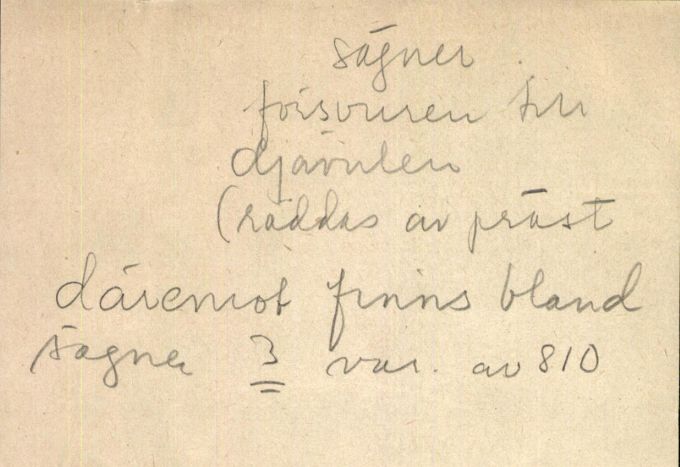 sägner
försvuren till
djävulen
(räddas av präst
däremot finns bland
sagner 3 var. av 810